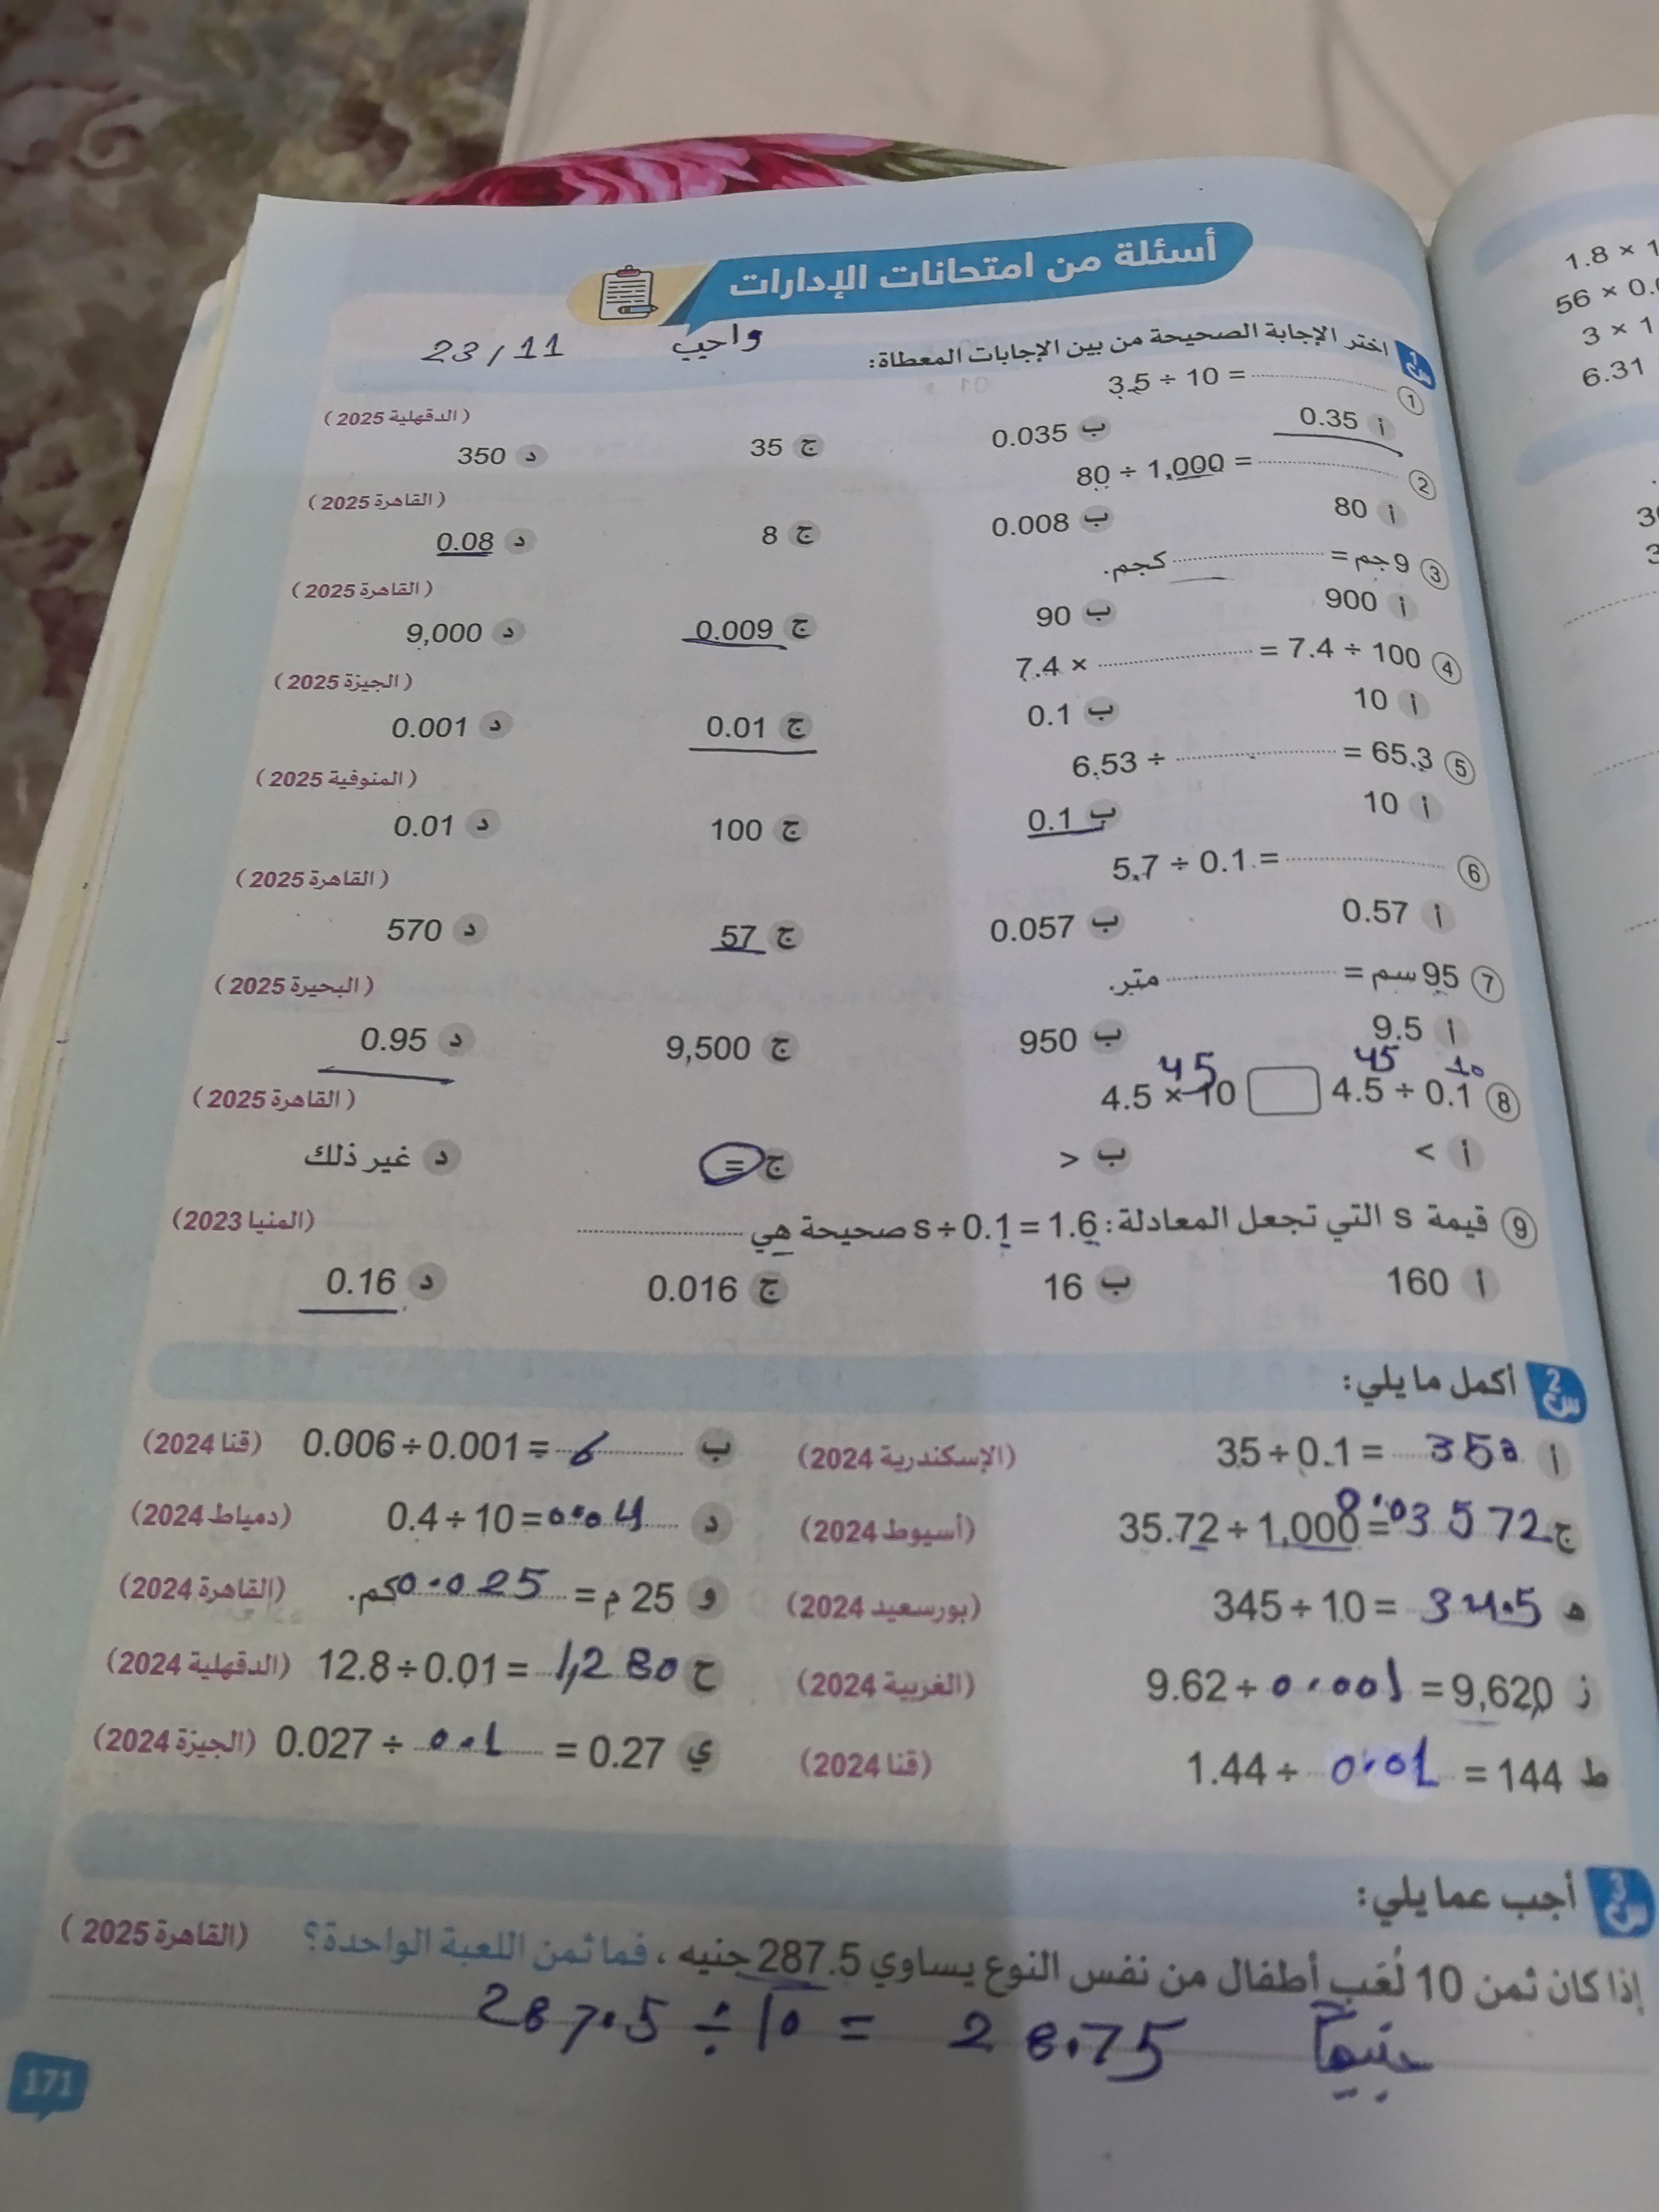 أسئلة من امتحانات الإدارات
23/11 واجب
س1 اختر الإجابة الصحيحة من بين الإجابات المعطاة:
① 3.5 ÷ 10 = .............. (الدقهلية 2025)
أ 0.35 ب 0.035 ج 35 د 350
② 80 ÷ 1,000 = .............. (القاهرة 2025)
أ 80 ب 0.008 ج 8 د 0.08
③ 9 جم = .............. كجم. (القاهرة 2025)
أ 900 ب 90 ج 0.009 د 9,000
④ 7.4 × .............. = 7.4 ÷ 100 (الجيزة 2025)
أ 10 ب 0.1 ج 0.01 د 0.001
⑤ 6.53 ÷ .............. = 65.3 (المنوفية 2025)
أ 10 ب 0.1 ج 100 د 0.01
⑥ 5.7 ÷ 0.1 = .............. (القاهرة 2025)
أ 0.57 ب 0.057 ج 57 د 570
⑦ 95 سم = .............. متر. (البحيرة 2025)
أ 9.5 ب 950 ج 9,500 د 0.95
45 45 10
⑧ 4.5 × 10 4.5 ÷ 0.1 (القاهرة 2025)
أ > ب < ج = د غير ذلك
⑨ قيمة s التي تجعل المعادلة: s ÷ 0.1 = 1.6 صحيحة هي .............. (المنيا 2023)
أ 160 ب 16 ج 0.016 د 0.16
س2 أكمل ما يلي:
أ 35 ÷ 0.1 = 350 (الإسكندرية 2024) ب 0.006 ÷ 0.001 = 6 (قنا 2024)
ج 35.72 ÷ 1,000 = 0.03572 (أسيوط 2024) د 0.4 ÷ 10 = 0.04 (دمياط 2024)
ه 345 ÷ 10 = 34.5 (بورسعيد 2024) و 25 م = 0.025 كم. (القاهرة 2024)
ز 9.62 ÷ 0.001 = 9,620 (الغربية 2024) ح 12.8 ÷ 0.01 = 1,280 (الدقهلية 2024)
ط 1.44 ÷ 0.01 = 144 (قنا 2024) ي 0.027 ÷ 0.1 = 0.27 (الجيزة 2024)
س3 أجب عما يلي:
إذا كان ثمن 10 لُعَب أطفال من نفس النوع يساوي 287.5 جنيه، فما ثمن اللعبة الواحدة؟ (القاهرة 2025)
287.5 ÷ 10 = 28.75 جنيهًا
171
1.8 × 1
56 × 0.
3 × 1
6.31